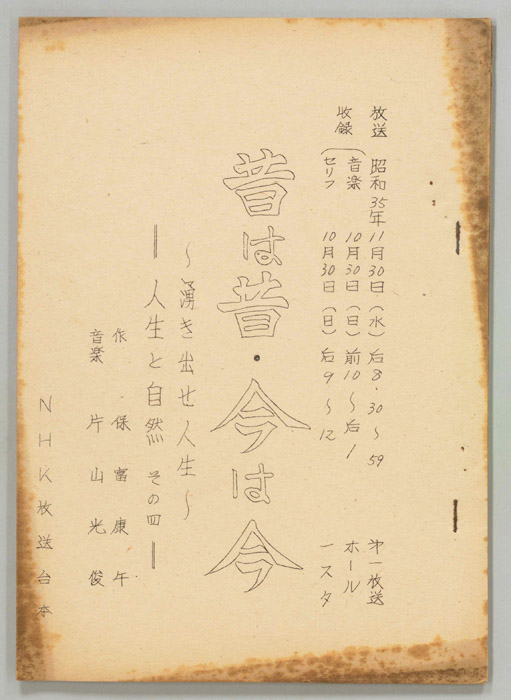 放送 昭和35年11月30日(水)后8.30～59 第一放送
収録 音楽 10月30日(日)前10～后1 ホール
セリフ 10月30日(日)后9～12 一スタ
昔は昔・今は今
～湧き出せ人生～
＝人生と自然 その四＝
作 保富康午
音楽 片山光俊
NHK放送台本